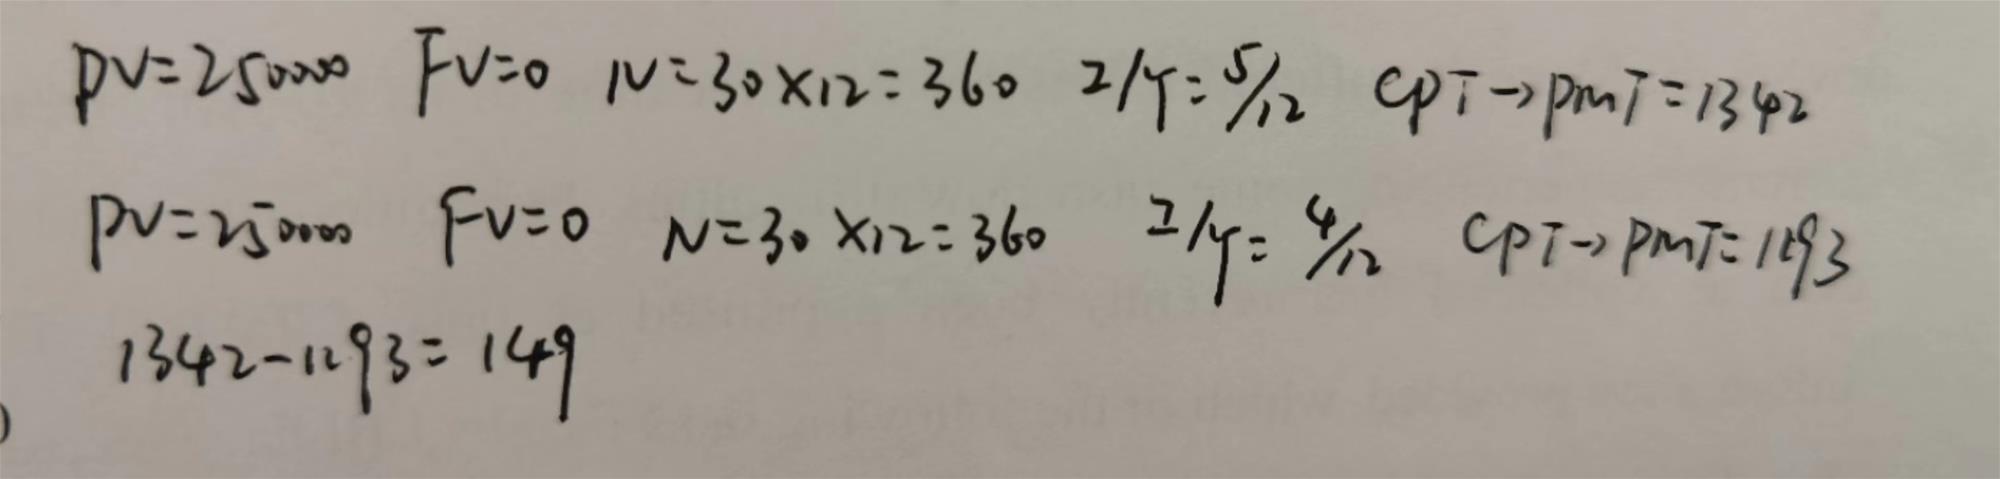 PV=250000 FV=0 N=30×12=360 I/Y=5/12 CPT→PMT=1342
PV=250000 FV=0 N=30×12=360 I/Y=4/12 CPT→PMT=1193
1342-1193=149
)